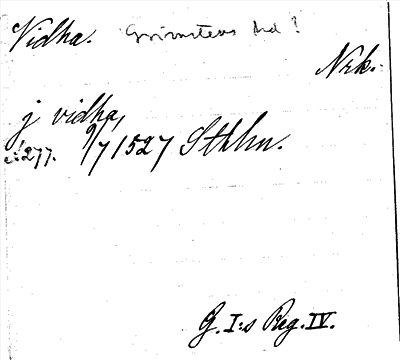 Vidha. Grimstens hd?
Nrk.
j vidha,
s. 277. 9/7 1527 Sthlm.
G. I:s Reg. IV.